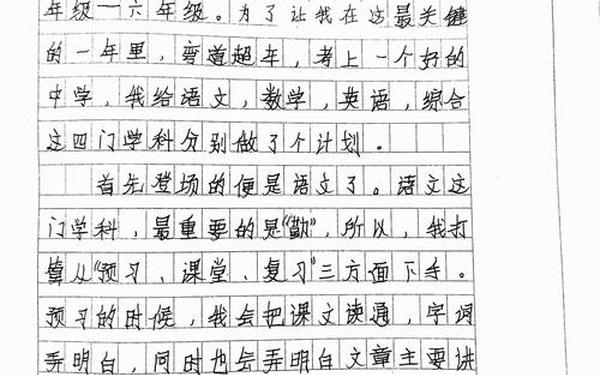 年级一六年级。为了让我在这最关键
的一年里，弯道超车，考上一个好的
中学，我给语文，数学，英语，综合
这四门学科分别做了个计划。
首先登场的便是语文了。语文这
门学科，最重要的是“勤”，所以，我打
算从“预习、课堂、复习”三方面下手。
预习的时候，我会把课文读通，字词
弄明白，同时也会弄明白文章主要讲